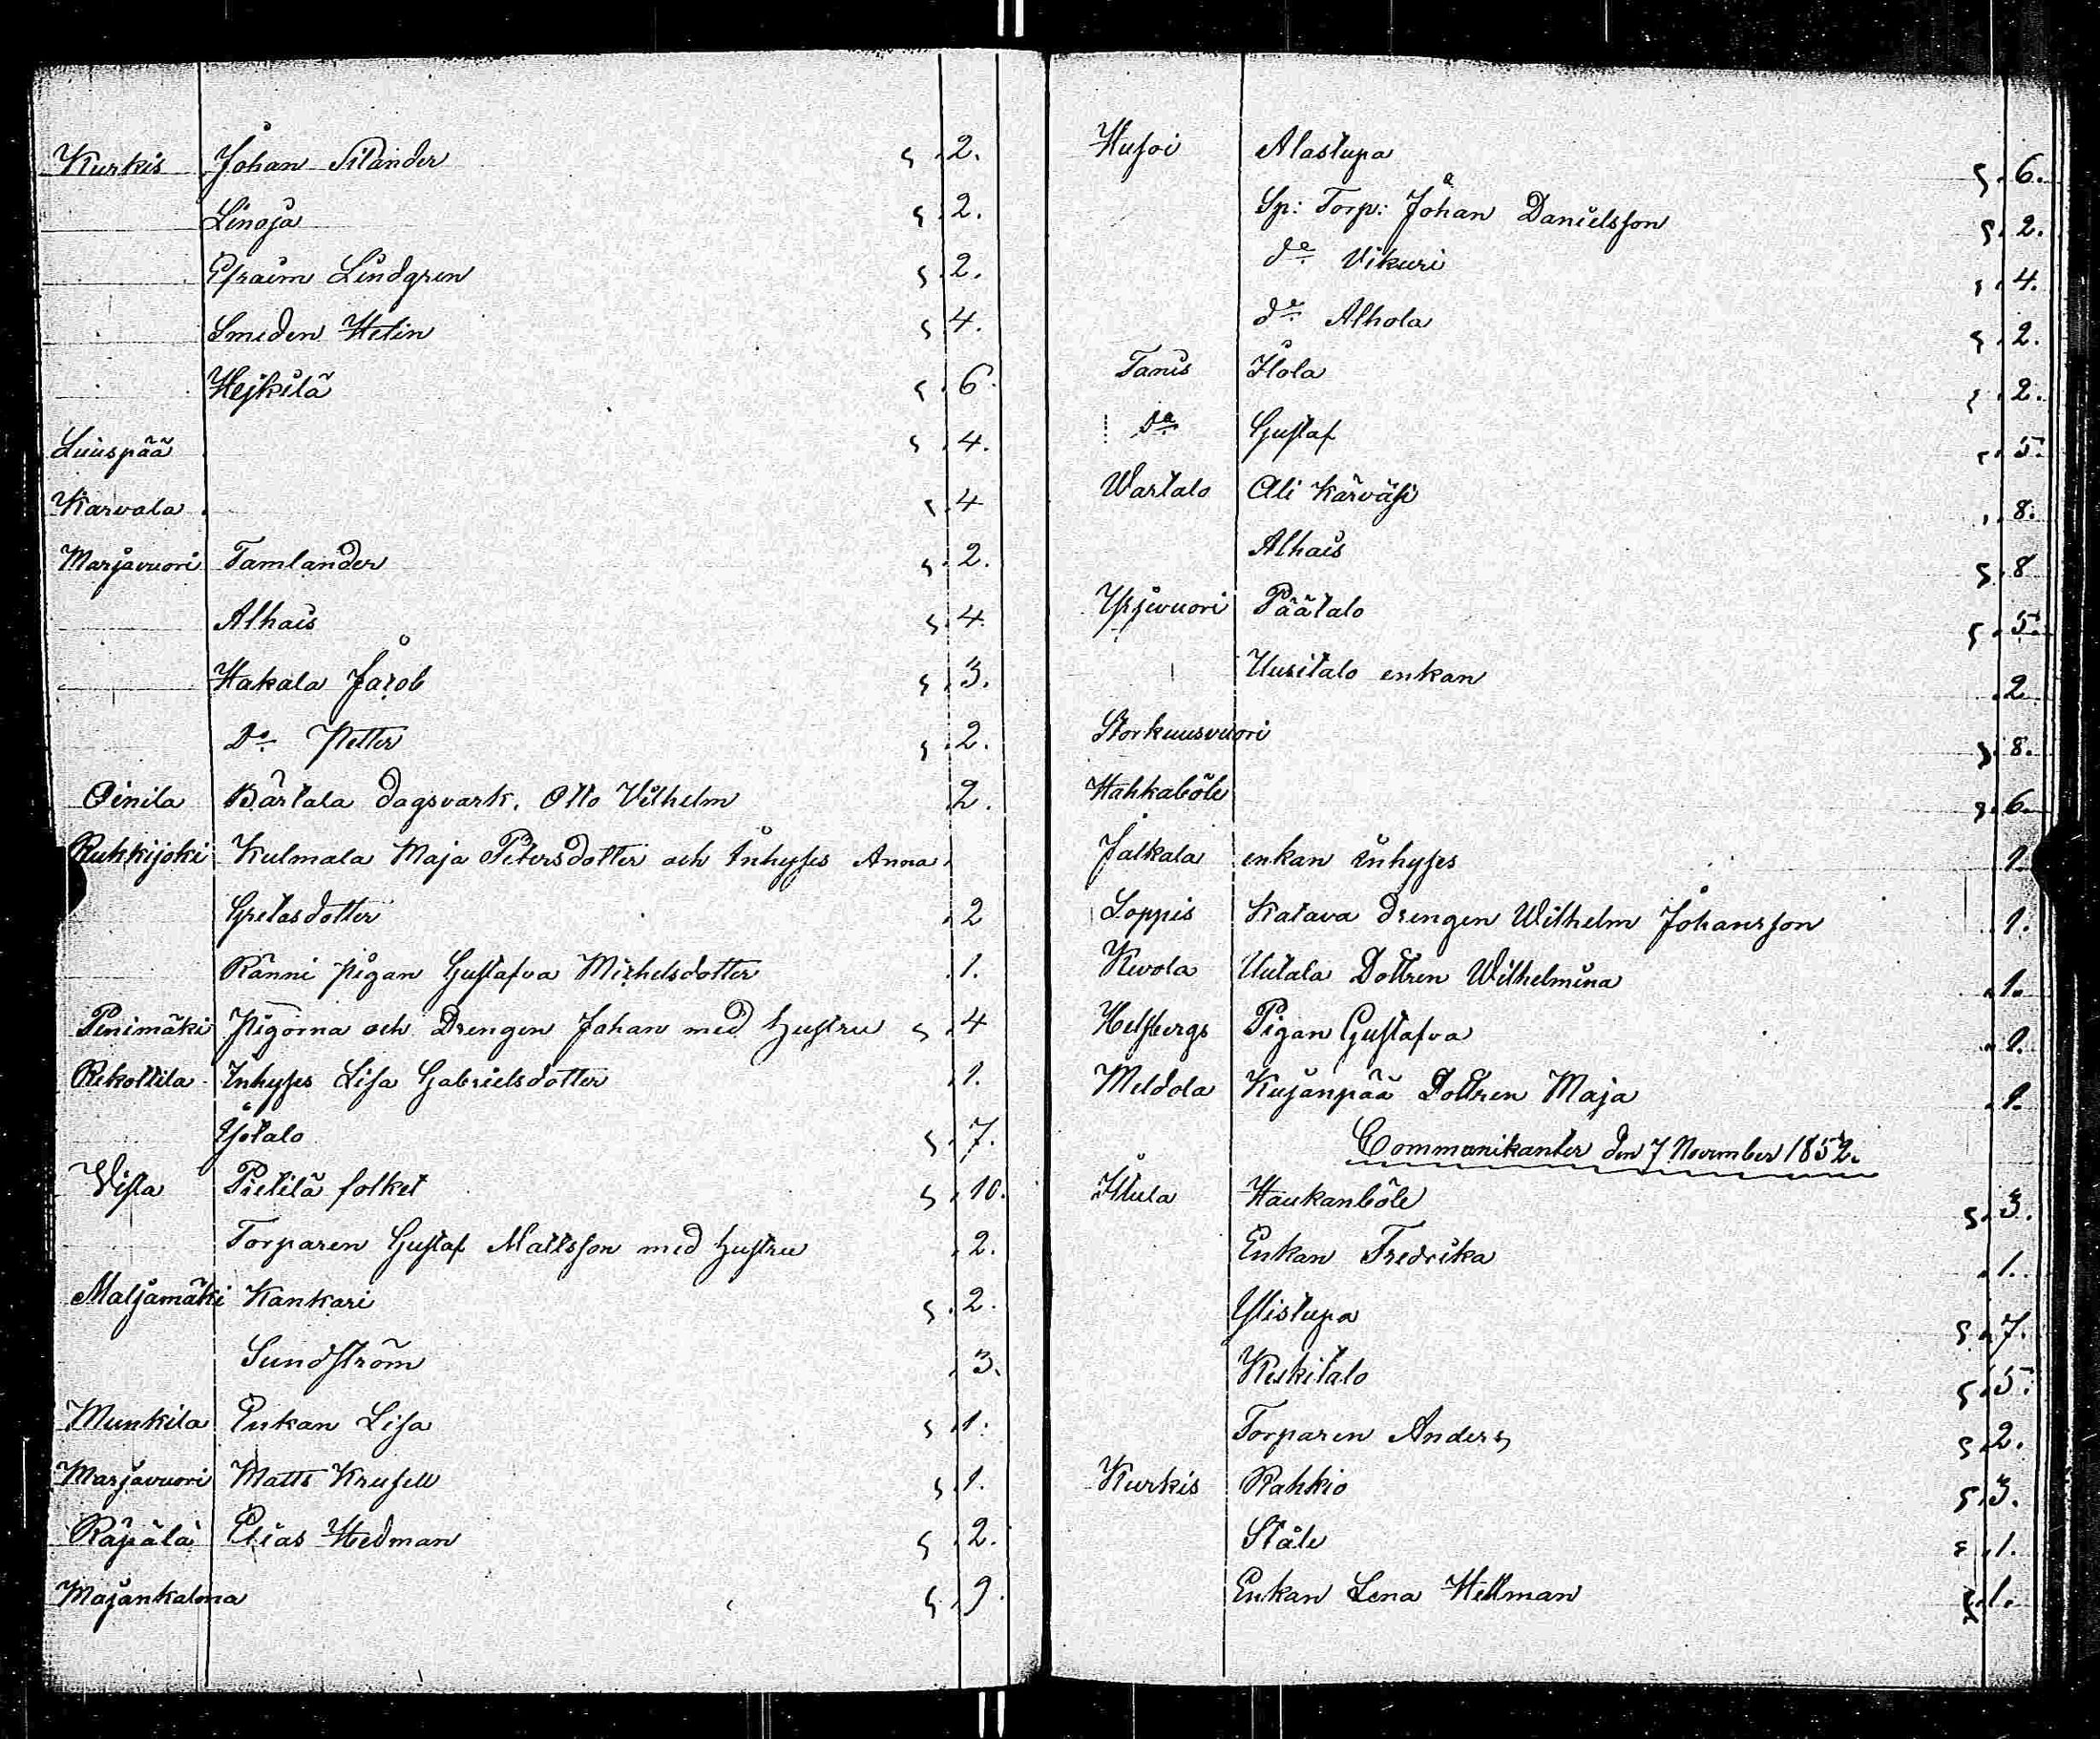 Kurkis Johan Silander ς . 2.
Linoja ς . 2.
Efraim Lindgren ς . 2.
Smeden Helin ς . 4.
Hejkilä ς . 6.
Luuspää ς . 4.
Karvala ς . 4
Marjavuori Tamlander ς . 2.
Alhais ς . 4.
Hakala Jacob ς . 3.
Do Petter ς . 2.
Oinila Bärtala dagsvark. Otto Vilhelm 2.
Ruhkijoki Kulmala Maja Petersdotter och Inhyses Anna
Gretasdotter . 2
Ränni pigan Gustafva Michelsdotter . 1.
Penimäki Pigorna och Drengen Johan med hustru ς . 4
Rekottila Inhyses Lisa Gabrielsdotter . 1.
Ylötalo ς . 7.
Vista Pietilä folket ς . 10.
Torparen Gustaf Mattsson med hustru . 2.
Maljamäki Kankari ς . 2.
Sundström . 3.
Munkila Enkan Lisa ς . 1.
Marjavuori Matts Krusell ς . 1.
Räpälä Elias Hedman ς . 2.
Majankalma ς . 9.
Husoi Alastupa ς . 6.
Sp: Torp: Johan Danielsson ς . 2.
do Vikuri . 4.
do Alhola ς . 2.
Tanis Ilola ς . 2.
do Gustaf . 5.
Wartalo Ali Kärväsi . 8.
Alhais ς . 8
Yrjivuori Päätalo ς . 5.
Uusitalo enkan . 2
Storkuusvuori ς . 8.
Hahkaböle ς . 6.
Jalkala enkan inhyses . 1.
Loppis Katava drengen Wilhelm Johansson . 1.
Kevola Uutala Dottren Wilhelmina . 1.
Helsbergs Pigan Gustafva . 1.
Meldola Kujanpää Dottren Maja . 1.
Communikanter den 7 November 1852.
Iltula Haukanböle ς . 3.
Enkan Fredrika . 1.
Ylistupa ς . 7.
Keskitalo ς . 5.
Torparen Anders ς . 2.
Kurkis Rahkio ς . 3.
Ståle ς . 1.
Enkan Lena Hellman ς . 1.